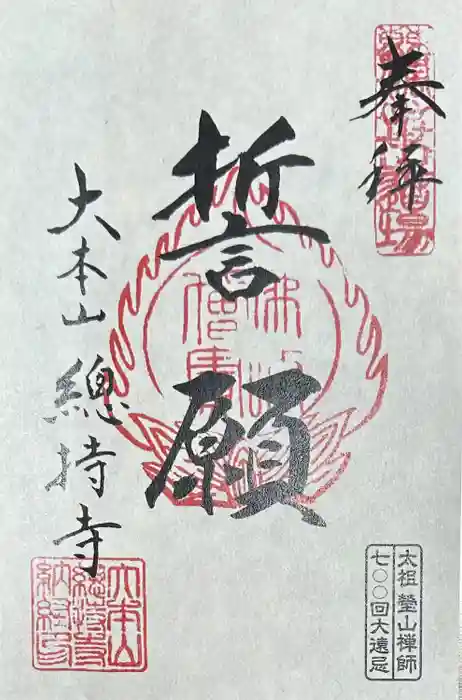 奉拝
誓願
大本山 總持寺
太祖 瑩山禅師
七〇〇回大遠忌
大本山
總持寺
納経印